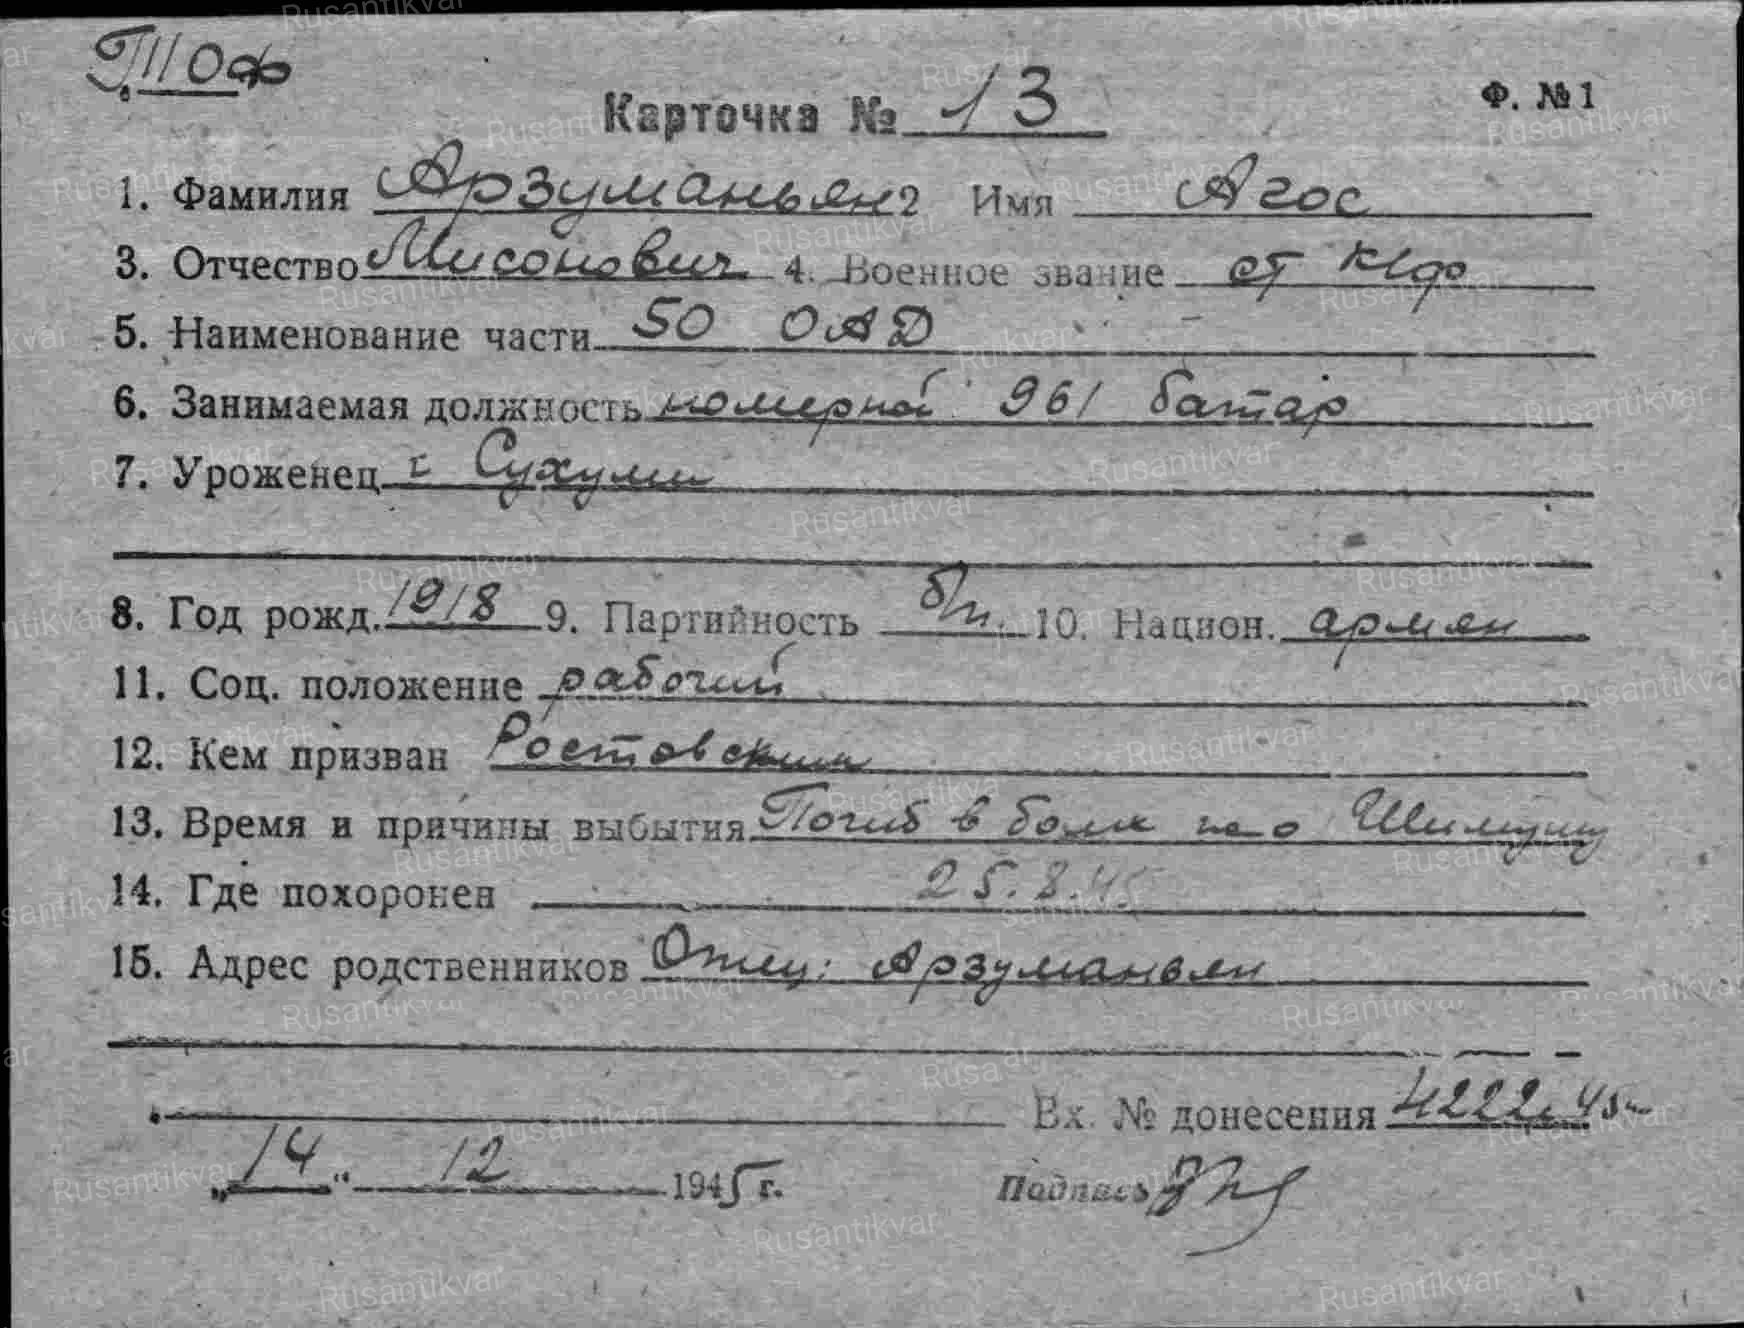 ТОФ
Карточка № 13
Ф. №1
1. Фамилия Арзуманьян 2 Имя Агос
3. Отчество Мисонович 4. Военное звание ст кнф
5. Наименование части 50 ОАД
6. Занимаемая должность номерной 961 батар
7. Уроженец г. Сухуми
8. Год рожд. 1918 9. Партийность б/п. 10. Национ. армян
11. Соц. положение рабочий
12. Кем призван Ростовским
13. Время и причины выбытия Погиб в боях на о Шимушу
14. Где похоронен 25.8.45
15. Адрес родственников Отец: Арзуманьян
Вх. № донесения 4222, 45
„14" 12 1945 г. Подпись